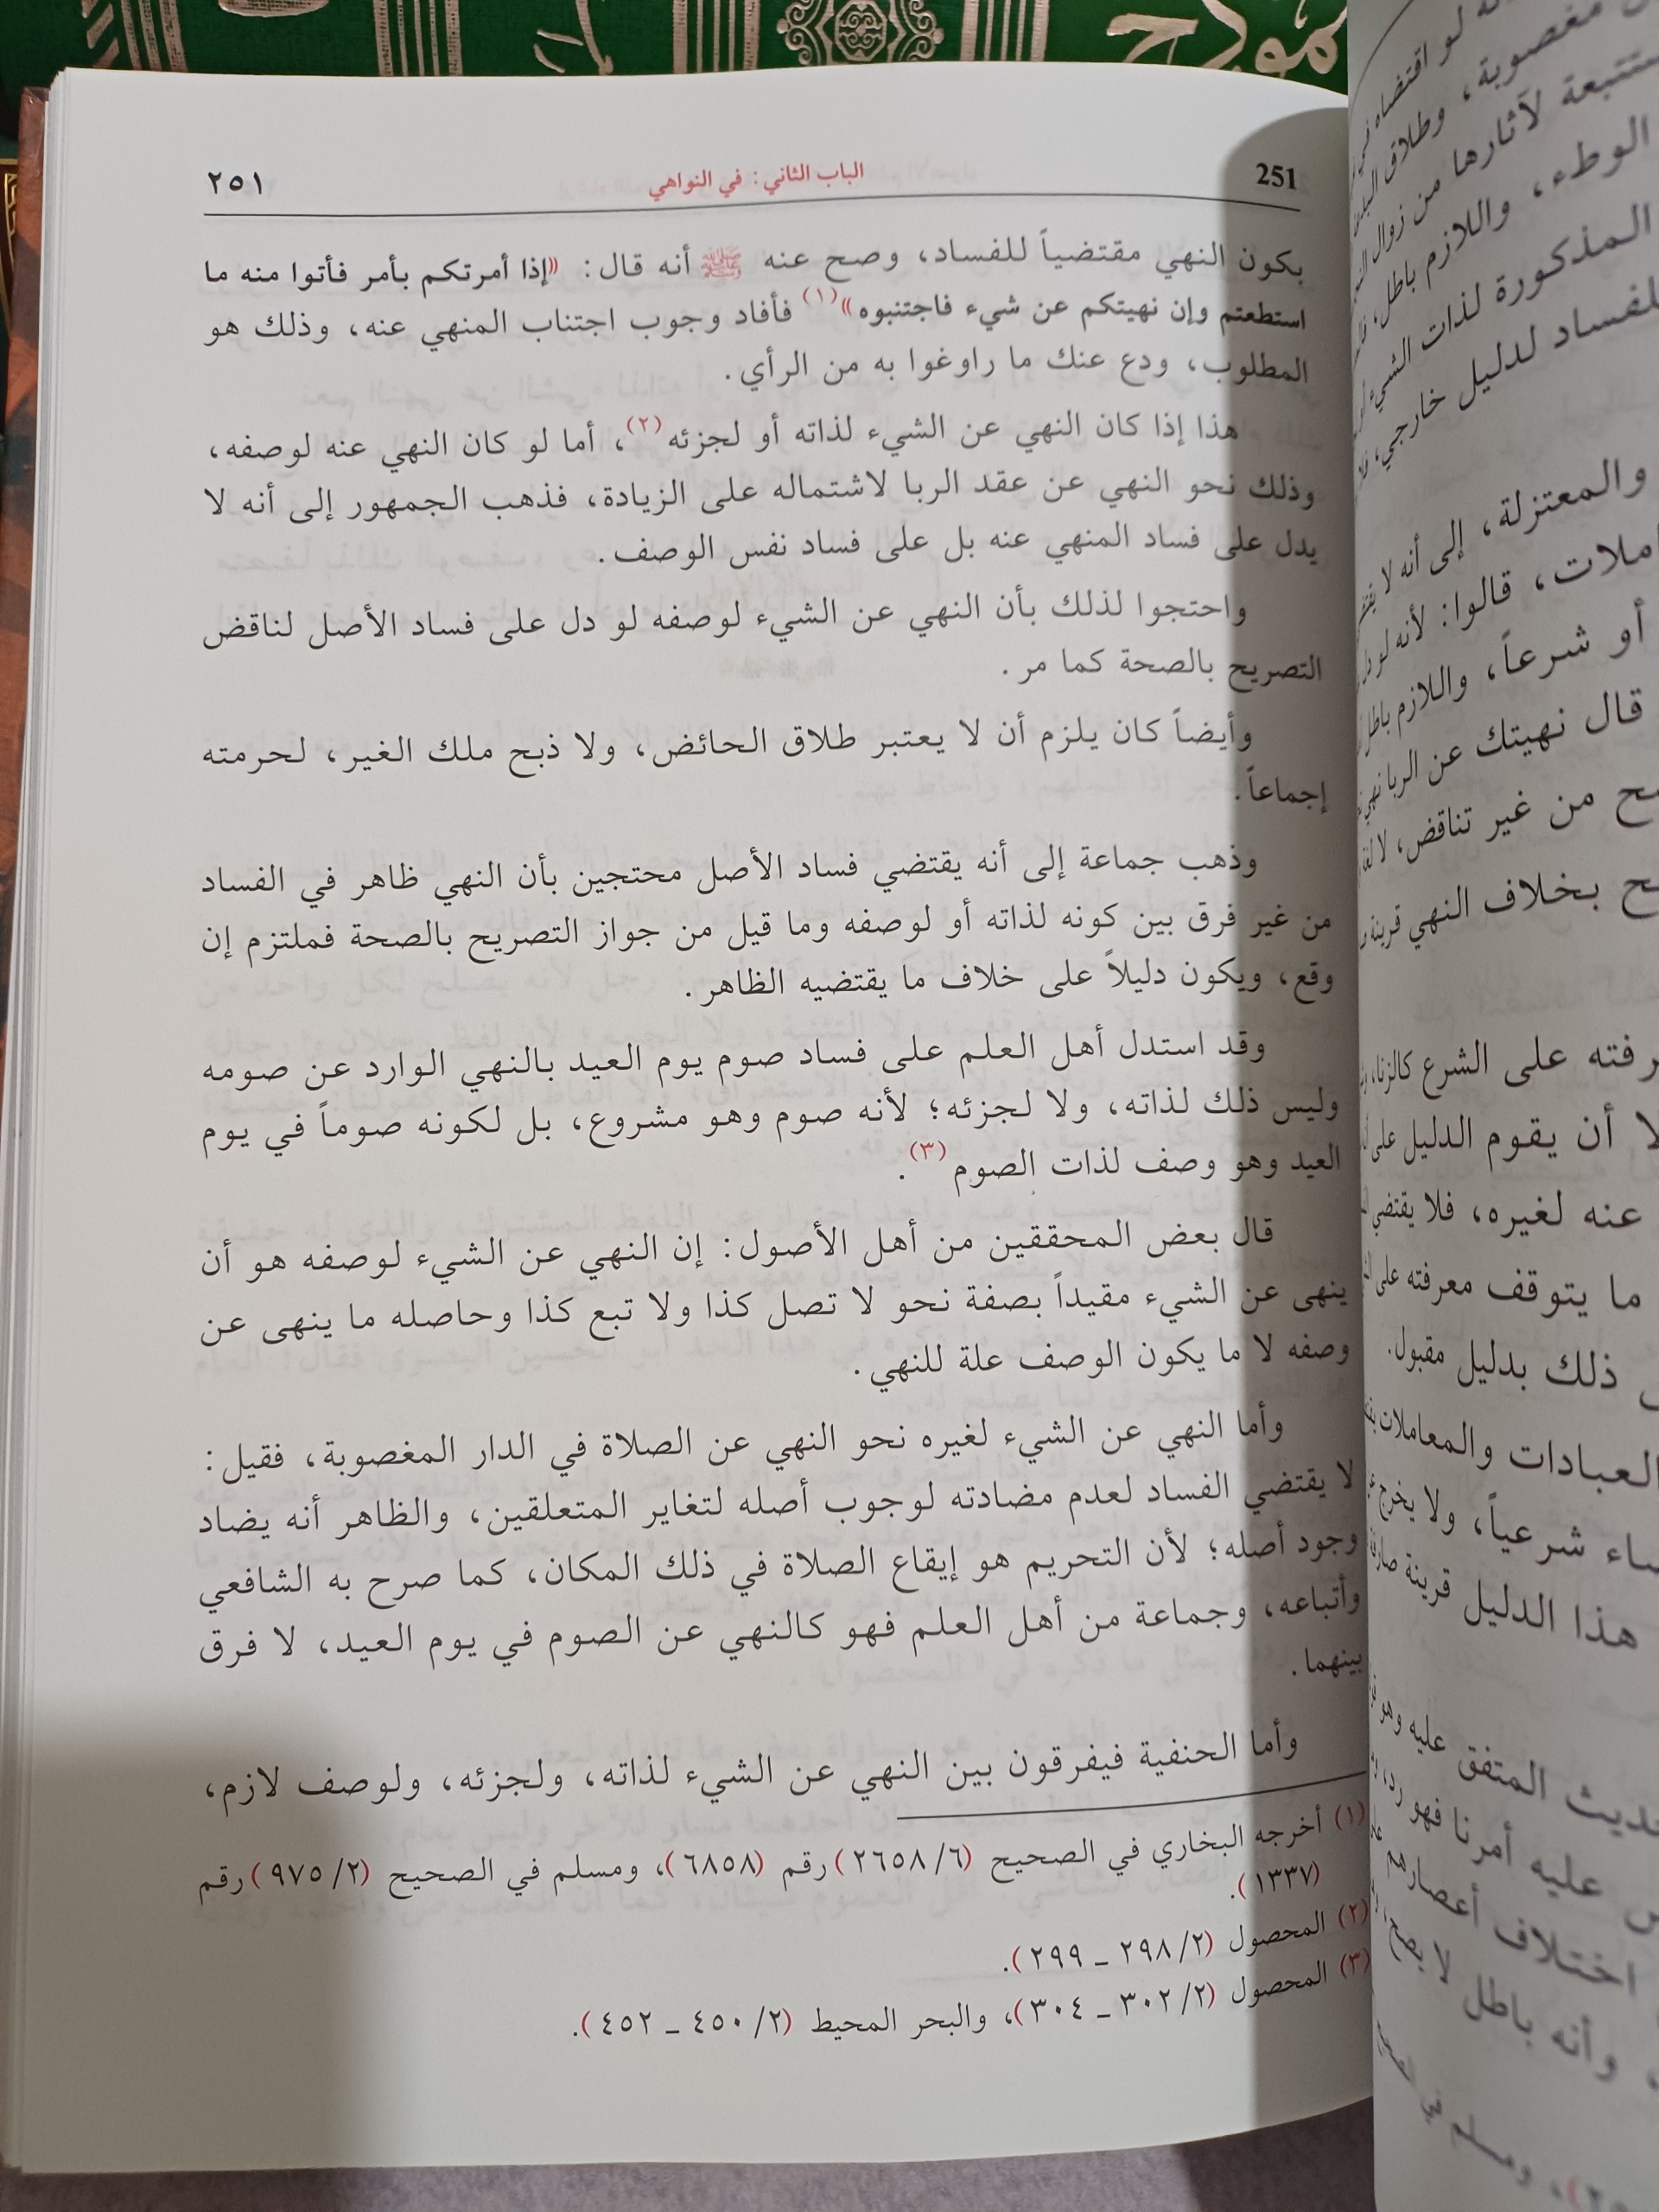 251 الباب الثاني: في النواهي ٢٥١
يكون النهي مقتضياً للفساد، وصح عنه ﷺ أنه قال: «إذا أمرتكم بأمر فأتوا منه ما
استطعتم وإن نهيتكم عن شيء فاجتنبوه»(١) فأفاد وجوب اجتناب المنهي عنه، وذلك هو
المطلوب، ودع عنك ما راوغوا به من الرأي.
هذا إذا كان النهي عن الشيء لذاته أو لجزئه(٢)، أما لو كان النهي عنه لوصفه،
وذلك نحو النهي عن عقد الربا لاشتماله على الزيادة، فذهب الجمهور إلى أنه لا
يدل على فساد المنهي عنه بل على فساد نفس الوصف.
واحتجوا لذلك بأن النهي عن الشيء لوصفه لو دل على فساد الأصل لناقض
التصريح بالصحة كما مر.
وأيضاً كان يلزم أن لا يعتبر طلاق الحائض، ولا ذبح ملك الغير، لحرمته
إجماعاً.
وذهب جماعة إلى أنه يقتضي فساد الأصل محتجين بأن النهي ظاهر في الفساد
من غير فرق بين كونه لذاته أو لوصفه وما قيل من جواز التصريح بالصحة فملتزم إن
وقع، ويكون دليلاً على خلاف ما يقتضيه الظاهر.
وقد استدل أهل العلم على فساد صوم يوم العيد بالنهي الوارد عن صومه
وليس ذلك لذاته، ولا لجزئه؛ لأنه صوم وهو مشروع، بل لكونه صوماً في يوم
العيد وهو وصف لذات الصوم(٣).
قال بعض المحققين من أهل الأصول: إن النهي عن الشيء لوصفه هو أن
ينهى عن الشيء مقيداً بصفة نحو لا تصل كذا ولا تبع كذا وحاصله ما ينهى عن
وصفه لا ما يكون الوصف علة للنهي.
وأما النهي عن الشيء لغيره نحو النهي عن الصلاة في الدار المغصوبة، فقيل:
لا يقتضي الفساد لعدم مضادته لوجوب أصله لتغاير المتعلقين، والظاهر أنه يضاد
وجود أصله؛ لأن التحريم هو إيقاع الصلاة في ذلك المكان، كما صرح به الشافعي
وأتباعه، وجماعة من أهل العلم فهو كالنهي عن الصوم في يوم العيد، لا فرق
بينهما.
وأما الحنفية فيفرقون بين النهي عن الشيء لذاته، ولجزئه، ولوصف لازم،
(١) أخرجه البخاري في الصحيح (٦/ ٢٦٥٨) رقم (٦٨٥٨)، ومسلم في الصحيح (٢/ ٩٧٥) رقم
(١٣٣٧).
(٢) المحصول (٢/ ٢٩٨ ـ ٢٩٩).
(٣) المحصول (٢/ ٣٠٢ ـ ٣٠٤)، والبحر المحيط (٢/ ٤٥٠ ـ ٤٥٢).
لو اقتضاه
مغصوبة، وطلاق
لآثارها من زوال
الوطء، واللازم باطل،
المذكورة لذات الشيء
للفساد لدليل خارجي،
والمعتزلة، إلى أنه لا
قالوا: لأنه لو
أو شرعاً، واللازم باطل
قال نهيتك عن الربا
من غير تناقض،
بخلاف النهي قرينة
على الشرع كالزنا،
أن يقوم الدليل على
عنه لغيره، فلا يقتضي
ما يتوقف معرفته على
ذلك بدليل مقبول.
العبادات والمعاملات
شرعياً، ولا يخرج
هذا الدليل قرينة
المتفق عليه وهو
عليه أمرنا فهو رد،
اختلاف أعصارهم
وأنه باطل لا يصح،